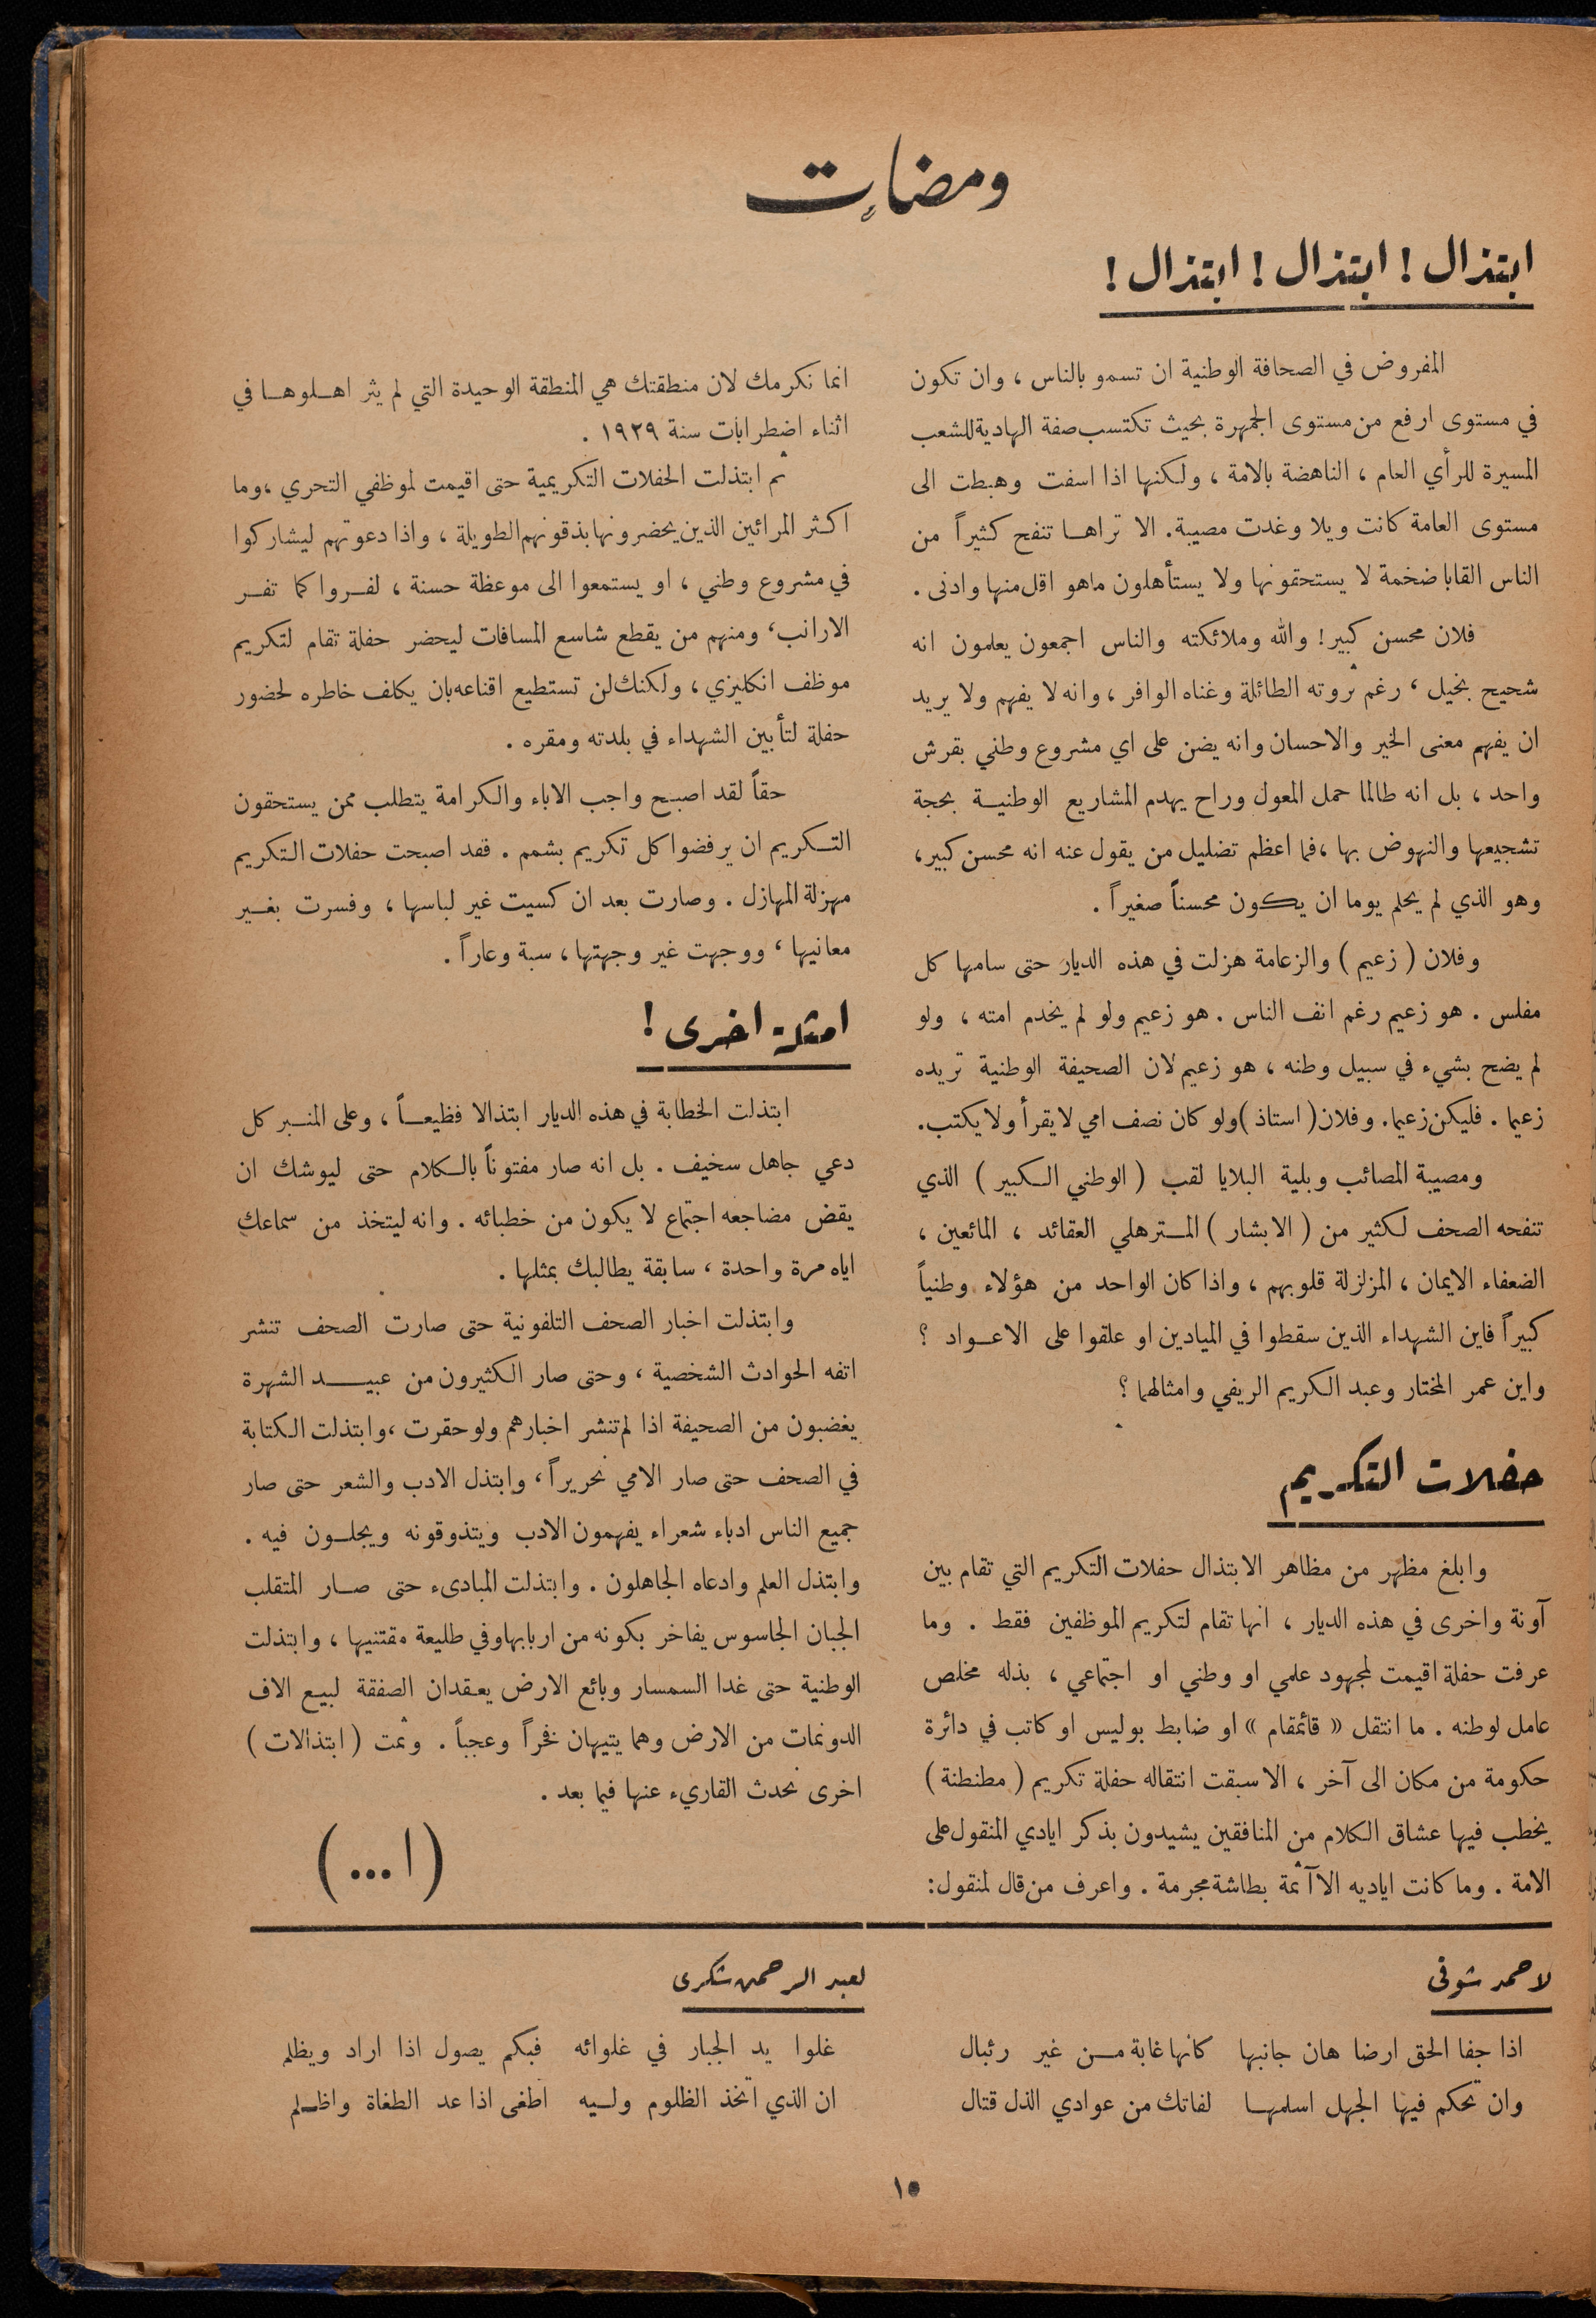 ومضات
ابتذال ! ابتذال ! ابتذال !
المفروض في الصحافة الوطنية ان تسمو بالناس ، وان تكون
في مستوى ارفع من مستوى الجمهرة بحيث تكتسب صفة الهادية للشعب
المسيرة للرأي العام ، الناهضة بالامة ، ولكنها اذا اسفت وهبطت الى
مستوى العامة كانت ويلا وغدت مصيبة . الا تراها تنفح كثيراً من
الناس القابا ضخمة لا يستحقونها ولا يستأهلون ماهو اقل منها وادنى .
فلان محسن كبير ! والله وملائكته والناس اجمعون يعلمون انه
شحيح بخيل ، رغم ثروته الطائلة وغناه الوافر ، وانه لا يفهم ولا يريد
ان يفهم معنى الخير والاحسان وانه يضن على اي مشروع وطني بقرش
واحد ، بل انه طالما حمل المعول وراح يهدم المشاريع الوطنية بحجة
تشجيعها والنهوض بها ، فما اعظم تضليل من يقول عنه انه محسن كبير ،
وهو الذي لم يحلم يوما ان يكون محسناً صغيراً .
وفلان ( زعيم ) والزعامة هزلت في هذه الديار حتى سامها كل
مفلس . هو زعيم رغم انف الناس . هو زعيم ولو لم يخدم امته ، ولو
لم يضح بشيء في سبيل وطنه ، هو زعيم لان الصحيفة الوطنية تريده
زعيما . فليكن زعيما . وفلان ( استاذ ) ولو كان نصف امي لا يقرأ ولا يكتب .
ومصيبة المصائب وبلية البلايا لقب ( الوطني الكبير ) الذي
تنفحه الصحف لكثير من ( الابشار ) المترهلي العقائد ، المائعين ،
الضعفاء الايمان ، المزلزلة قلوبهم ، واذا كان الواحد من هؤلاء وطنياً
كبيراً فاين الشهداء الذين سقطوا في الميادين او علقوا على الاعواد ؟
واين عمر المختار وعبد الكريم الريفي وامثالهما ؟
حفلات التكريم
وابلغ مظهر من مظاهر الابتذال حفلات التكريم التي تقام بين
آونة واخرى في هذه الديار ، انها تقام لتكريم الموظفين فقط . وما
عرفت حفلة اقيمت لمجهود علمي او وطني او اجتماعي ، بذله مخلص
عامل لوطنه . ما انتقل « قائمقام » او ضابط بوليس او كاتب في دائرة
حكومة من مكان الى آخر ، الا سبقت انتقاله حفلة تكريم ( مطنطنة )
يخطب فيها عشاق الكلام من المنافقين يشيدون بذكر ايادي المنقول على
الامة . وما كانت اياديه الا آثمة بطاشة مجرمة . واعرف من قال لمنقول :
انما نكرمك لان منطقتك هي المنطقة الوحيدة التي لم يثر اهلوها في
اثناء اضطرابات سنة ١٩٢٩ .
ثم ابتذلت الحفلات التكريمية حتى اقيمت لموظفي التحري ، وما
اكثر المرائين الذين يحضرونها بذقونهم الطويلة ، واذا دعوتهم ليشاركوا
في مشروع وطني ، او يستمعوا الى موعظة حسنة ، لفروا كما تفر
الارانب ، ومنهم من يقطع شاسع المسافات ليحضر حفلة تقام لتكريم
موظف انكليزي ، ولكنك لن تستطيع اقناعه بان يكلف خاطره لحضور
حفلة لتأبين الشهداء في بلدته ومقره .
حقاً لقد اصبح واجب الاباء والكرامة يتطلب ممن يستحقون
التكريم ان يرفضوا كل تكريم بشمم . فقد اصبحت حفلات التكريم
مهزلة المهازل . وصارت بعد ان كسيت غير لباسها ، وفسرت بغير
معانيها ، ووجهت غير وجهتها ، سبة وعاراً .
امثلة اخرى !
ابتذلت الخطابة في هذه الديار ابتذالا فظيعاً ، وعلى المنبر كل
دعي جاهل سخيف . بل انه صار مفتوناً بالكلام حتى ليوشك ان
يقض مضاجعه اجتماع لا يكون من خطبائه . وانه ليتخذ من سماعك
اياه مرة واحدة ، سابقة يطالبك بمثلها .
وابتذلت اخبار الصحف التلفونية حتى صارت الصحف تنشر
اتفه الحوادث الشخصية ، وحتى صار الكثيرون من عبيد الشهرة
يغضبون من الصحيفة اذا لم تنشر اخبارهم ولو حقرت ، وابتذلت الكتابة
في الصحف حتى صار الامي نحريراً ، وابتذل الادب والشعر حتى صار
جميع الناس ادباء شعراء يفهمون الادب ويتذوقونه ويجلون فيه .
وابتذل العلم وادعاه الجاهلون . وابتذلت المبادىء حتى صار المتقلب
الجبان الجاسوس يفاخر بكونه من اربابها وفي طليعة مقتنيها ، وابتذلت
الوطنية حتى غدا السمسار وبائع الارض يعقدان الصفقة لبيع الاف
الدونمات من الارض وهما يتيهان فخراً وعجباً . وثمت ( ابتذالات )
اخرى نحدث القاريء عنها فيما بعد .
( ا ... )
لاحمد شوقى
اذا جفا الحق ارضا هان جانبها كانها غابة من غير رئبال
وان تحكم فيها الجهل اسلمها لفاتك من عوادي الذل قتال
لعبد الرحمن شكرى
غلوا يد الجبار في غلوائه فبكم يصول اذا اراد ويظلم
ان الذي اتخذ الظلوم وليه اطغى اذا عد الطغاة واظلم
١٥